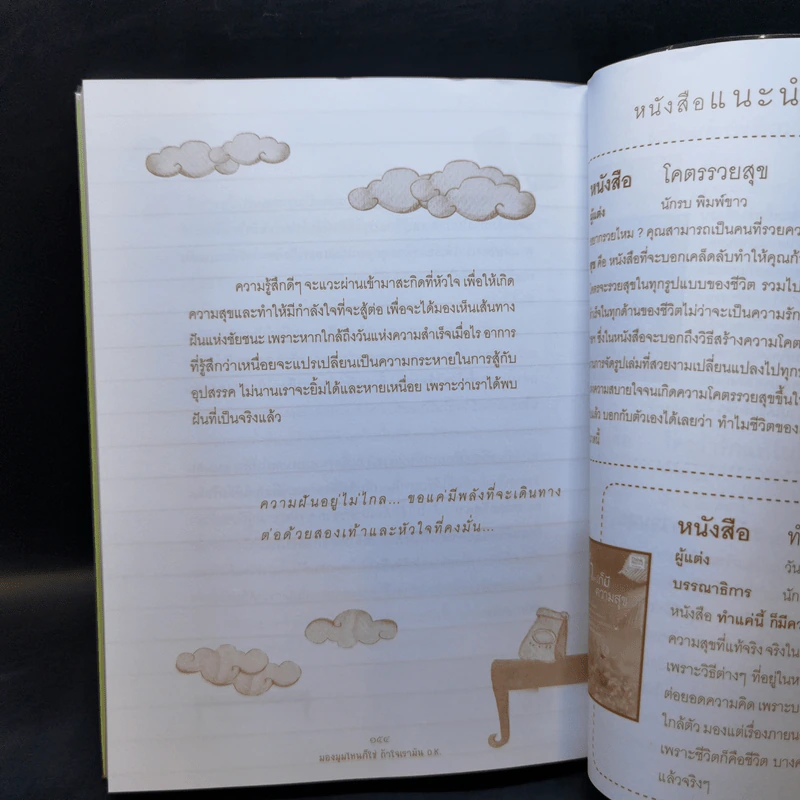 ความรู้สึกดีๆ จะแวะผ่านเข้ามาสะกิดที่หัวใจ เพื่อให้เกิด
ความสุขและทำให้มีกำลังใจที่จะสู้ต่อ เพื่อจะได้มองเห็นเส้นทาง
ฝันแห่งชัยชนะ เพราะหากใกล้ถึงวันแห่งความสำเร็จเมื่อไร อาการ
ที่รู้สึกว่าเหนื่อยจะแปรเปลี่ยนเป็นความกระหายในการสู้กับ
อุปสรรค ไม่นานเราจะยิ้มได้และหายเหนื่อย เพราะว่าเราได้พบ
ฝันที่เป็นจริงแล้ว
ความฝันอยู่ไม่ไกล... ขอแค่มีพลังที่จะเดินทาง
ต่อด้วยสองเท้าและหัวใจที่คงมั่น...
มองมุมไหนก็ใช่ ถ้าใจเรามัน O.K.
หนังสือแนะนำ
หนังสือ โคตรรวยสุข
ผู้แต่ง นักรบ พิมพ์ขาว
อยากรวยไหม ? คุณสามารถเป็นคนที่รวยคว
สุข คือ หนังสือที่จะบอกเคล็ดลับทำให้คุณกั
จะรวยสุขในทุกรูปแบบของชีวิต รวมไป
ในทุกด้านของชีวิตไม่ว่าจะเป็นความรัก
ซึ่งในหนังสือจะบอกถึงวิธีสร้างความโคต
การจัดรูปเล่มที่สวยงามเปลี่ยนแปลงไปทุกร
ความสบายใจจนเกิดความโคตรรวยสุขขึ้นใ
แล้ว บอกกับตัวเองได้เลยว่า ทำไมชีวิตของ
หนังสือ ทำ
ผู้แต่ง วัน
บรรณาธิการ นัก
หนังสือ ทำแค่นี้ ก็มีคว
ความสุขที่แท้จริง จริงใน
เพราะวิธีต่างๆ ที่อยู่ในห
ต่อยอดความคิด เพราะบ
ใกล้ตัว มองแต่เรื่องภายน
เพราะชีวิตก็คือชีวิต บางค
แล้วจริงๆ
ก็มี
ความสุข